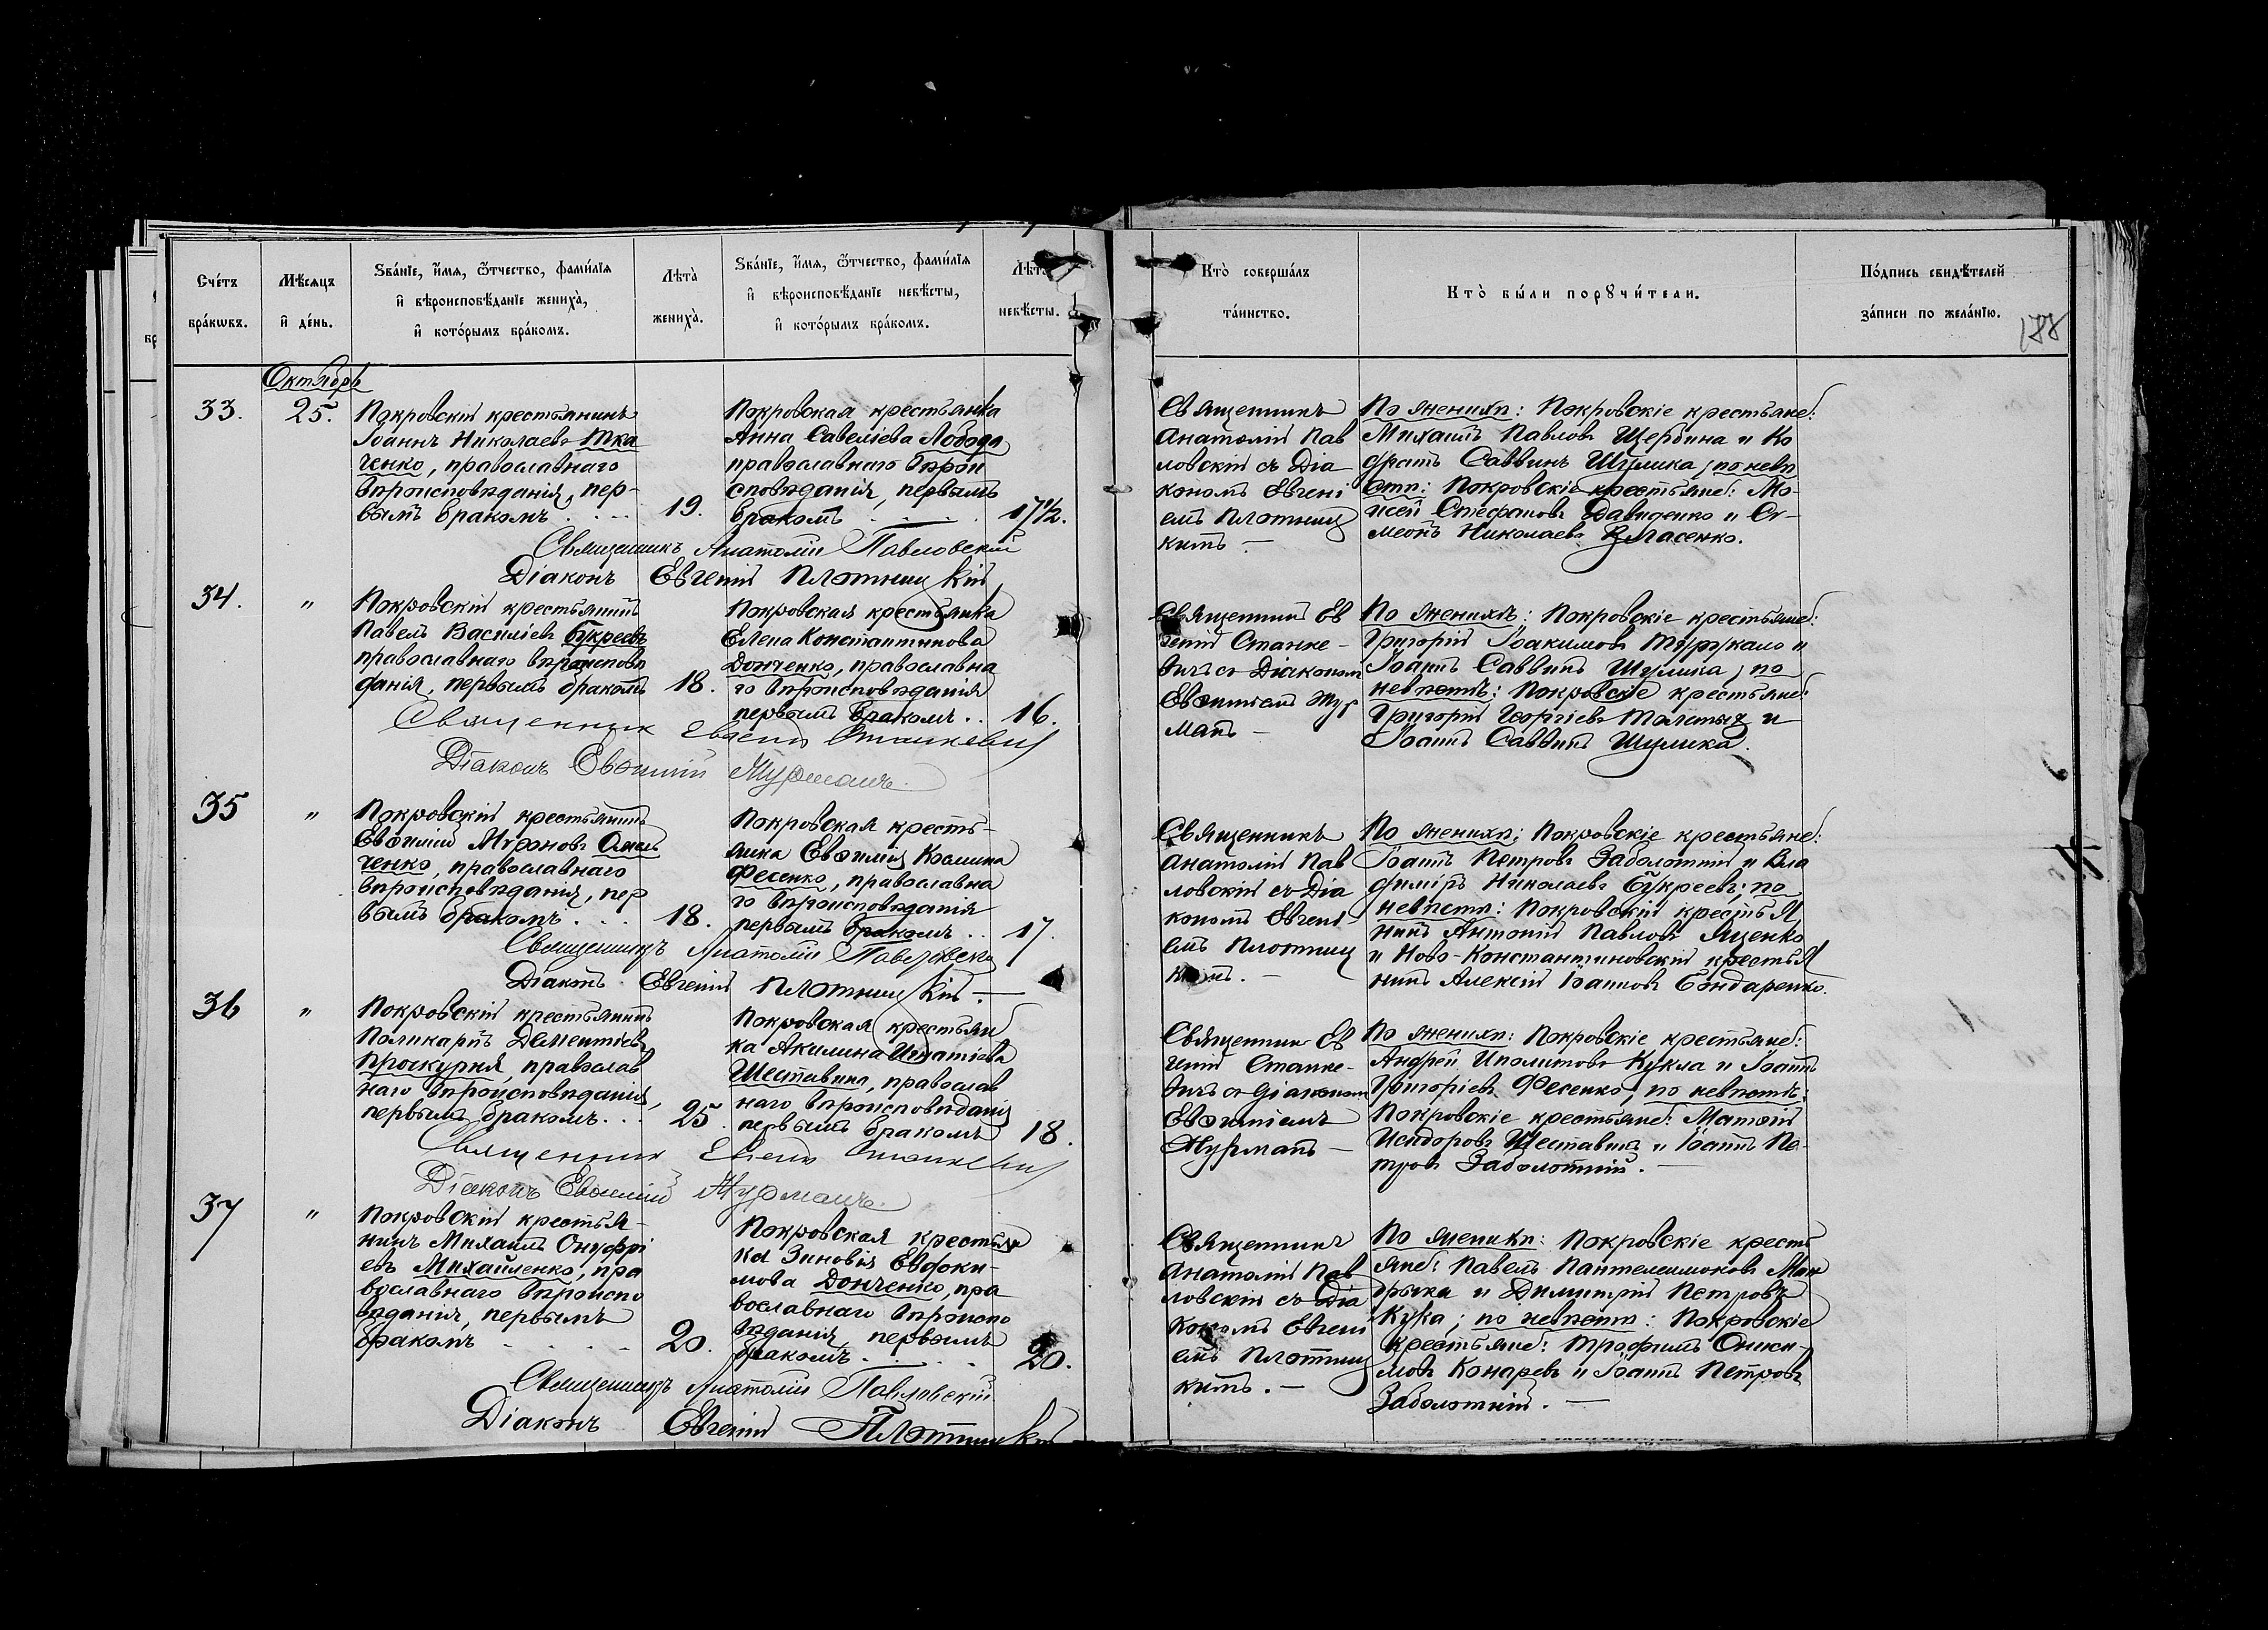 Сче́тъ бра́кѡвъ.
Мѣ́сяцъ и҆ де́нь.
Ѕва́нїе, и҆́мѧ, ѻ҆́тчество, фами́лїѧ и҆ вѣроисповѣ́данїе жениха̀, и҆ кото́рымъ бра́комъ.
Лѣта̀ жениха̀.
Ѕва́нїе, и҆́мѧ, ѻ҆́тчество, фами́лїѧ и҆ вѣроисповѣ́данїе невѣ́сты, и҆ кото́рымъ бра́комъ.
Лѣта̀ невѣ́сты.
Кто̀ соверша́лъ та́инство.
Кто̀ бы́ли порꙋчи́тели.
По́дпись свидѣ́телей за́писи по жела́нїю.
188
Октябрь
33.
25.
Покровскій крестьянинъ
Іоаннъ Николаевъ Тка
ченко, православнаго
вѣроисповѣданія, пер-
вымъ бракомъ . . . .
19.
Покровская крестьянка
Анна Савеліева Лобода
православнаго вѣрои
сповѣданія, первымъ
бракомъ . . . .
17½.
Священникъ
Анатолій Пав
ловскій съ Діа
кономъ Евгені
емъ Плотниц
кимъ —
По женихѣ: Покровскіе крестьяне:
Михаилъ Павловъ Щербина и Ко
дратъ Саввинъ Шулика; по невѣ
стѣ: Покровскіе крестьяне: Мо-
исей Стефановъ Давиденко и Си-
меонъ Николаевъ Власенко.
Священникъ Анатолій Павловскій
Діаконъ Евгеній Плотницкій
34.
"
Покровскій крестьянинъ
Павелъ Василіевъ Букреевъ
православнаго вѣроисповѣ
данія, первымъ бракомъ
18.
Покровская крестьянка
Елена Константинова
Донченко, православна
го вѣроисповѣданія
первымъ бракомъ . .
16.
Священникъ Ев
геній Станке-
вичъ съ Діакономъ
Евѳиміемъ Жур
манъ —
По женихѣ: Покровскіе крестьяне:
Григорій Іоакимовъ и
Іоаннъ Саввинъ Шулика; по
невѣстѣ: Покровскіе крестьяне:
Григорій Георгіевъ Толстых и
Іоаннъ Саввинъ Шулика.
Священник Евгеній Станкевич
Діаконъ Евѳимій Журманъ.
35
"
Покровскій крестьянинъ
Евѳимій Мироновъ
ченко, православнаго
вѣроисповѣданія, пер
вымъ бракомъ . . .
18.
Покровская кресть-
янка Евѳимія Космина
Фесенко, православна
го вѣроисповѣданія
первымъ бракомъ . .
17.
Священникъ
Анатолій Пав
ловскій съ Діа
кономъ Евгені
емъ Плотниц
кимъ. —
По женихѣ: Покровскіе крестьяне:
Іоаннъ Петровъ Заболотній и Вла
димиръ Николаевъ Букреевъ; по
невѣстѣ: Покровскій крестья
нинъ Антоній Павловъ Яценко
и Ново-Константиновскій крестья
нинъ Алексій Іоанновъ Бондаренко.
Священникъ Анатолій Павловскій
Діаконъ Евгеній Плотницкій. —
36
"
Покровскій крестьянинъ
Поликарпъ Дементіев
Проскурня, православ
наго вѣроисповѣданія,
первымъ бракомъ . . .
25.
Покровская крестьян
ка Акилина Игнатіева
Шеставина, православ
наго вѣроисповѣданія
первымъ бракомъ
18.
Священник Ев
геній Станке-
вичъ съ Діакономъ
Евѳиміемъ
Журманъ —
По женихѣ: Покровскіе крестьяне:
Андрей Иполитовъ Кукла и Іоаннъ
Григоріевъ Фесенко; по невѣстѣ:
Покровскіе крестьяне: Матѳій
Исидоровъ Шеставинъ и Іоаннъ Пе-
тровъ Заболотній. —
Священник Евгеній Станкевич
Діаконъ Евѳимій Журманъ.
37
"
Покровскій крестья-
нинъ Михаилъ Онуфрі
евъ Михайленко, пра
вославнаго вѣроиспо
вѣданія, первымъ
бракомъ . . . .
20.
Покровская крестьян
ка Зиновія Евдоки-
мова Донченко, пра
вославнаго вѣроиспо
вѣданія, первымъ
бракомъ . . . .
20.
Священникъ
Анатолій Пав
ловскій съ Діа
кономъ Евгені
емъ Плотниц
кимъ. —
По женихѣ: Покровскіе кресть
яне: Павелъ Пантелеимоновъ Ман
дрыка и Димитрій Петровъ
Кука; по невѣстѣ: Покровскіе
крестьяне: Трофимъ Ониси-
мовъ Конаревъ и Іоаннъ Петровъ
Заболотній. —
Священникъ Анатолій Павловскій
Діаконъ Евгеній Плотницкій